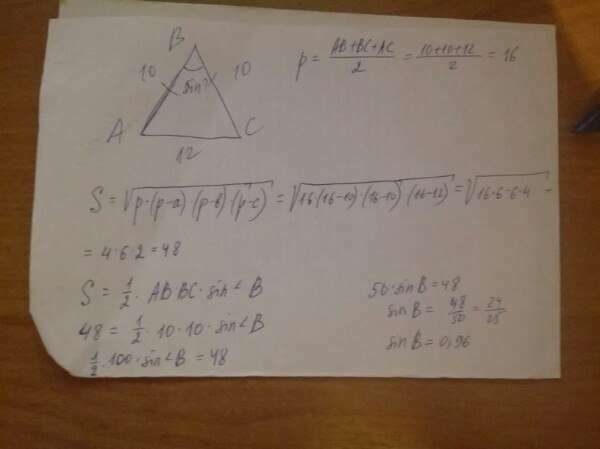 B
10 10
sin?
A C
12
p = (AB+BC+AC)/2 = (10+10+12)/2 = 16
S = √(p·(p-a)·(p-b)·(p-c)) = √(16(16-10)·(16-10)·(16-12)) = √(16·6·6·4) =
= 4·6·2 = 48
S = 1/2 · AB BC · sin∠B
48 = 1/2 · 10·10 · sin∠B
1/2 · 100 · sin∠B = 48
50·sin B = 48
sin B = 48/50 = 24/25
sin B = 0,96